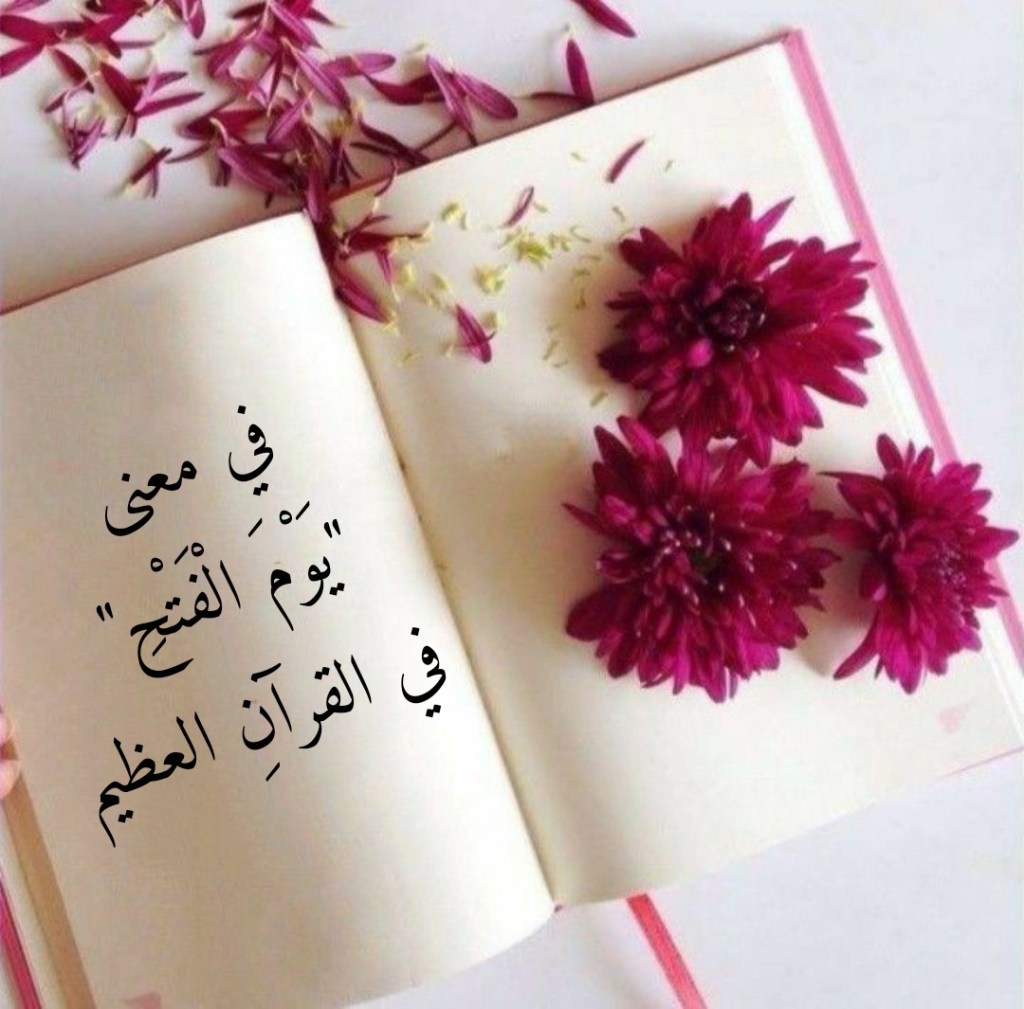 في معنى
"يَوْمَ الْفَتْحِ"
في القرآنِ العظيم